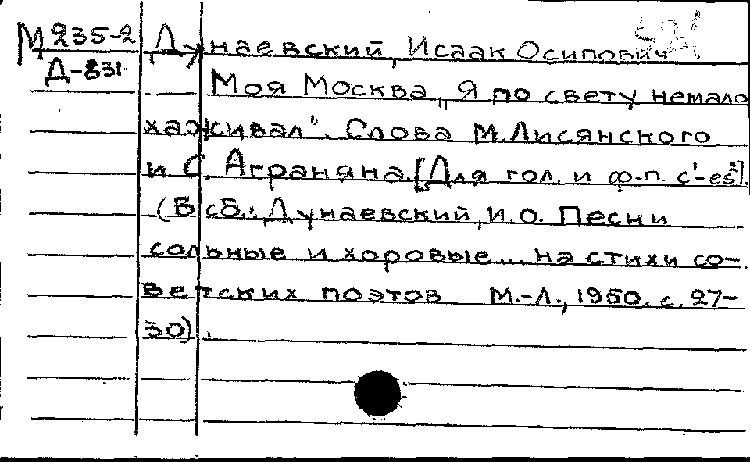 М 235-2 Дунаевский, Исаак Осипович
Д-831
Моя Москва „Я по свету немало
хаживал". Слова М. Лисянского
и С. Аграняна. [Для гол. и ф.-п. c¹-es²].
(В сб.: Дунаевский, И.О. Песни
сольные и хоровые... на стихи со-
ветских поэтов М.-Л., 1950. с. 27-
30).